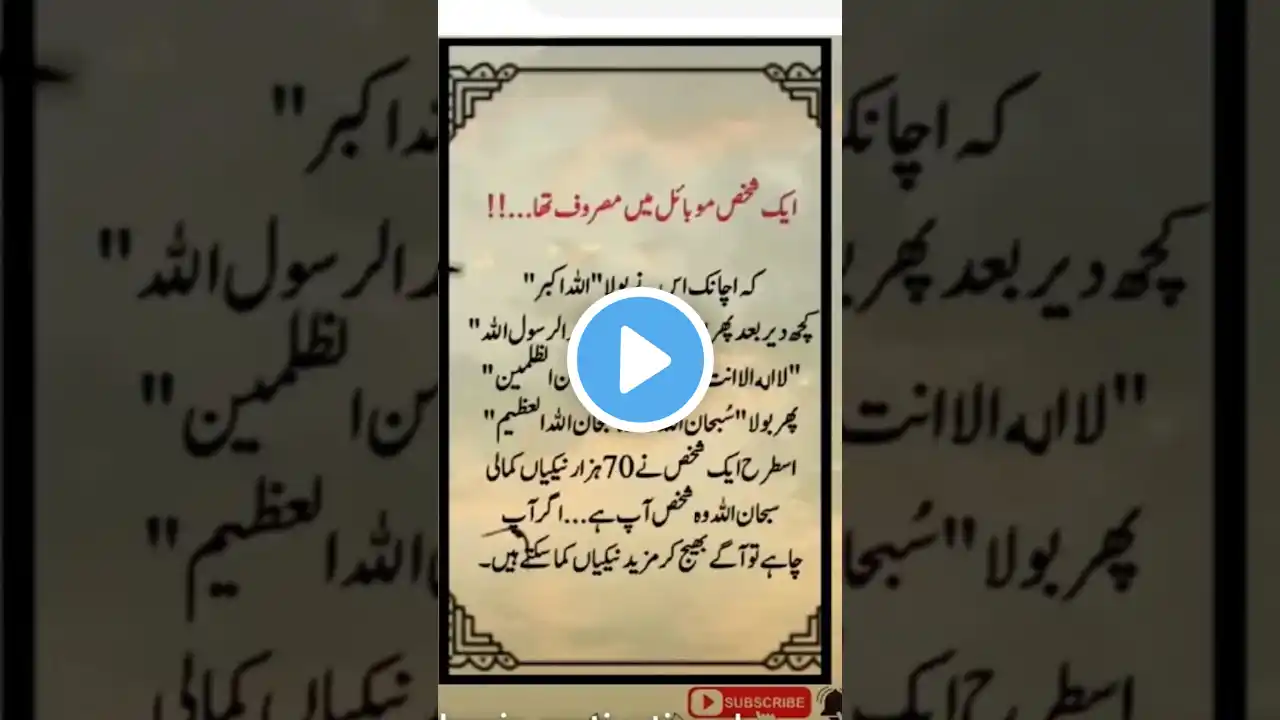 ایک شخص موبائل میں مصروف تھا...!!
کہ اچانک اس نے بولا "اللہ اکبر"
کچھ دیر بعد پھر الرسول اللہ"
"لا الہ الا انت الظلمین"
پھر بولا "سُبحان اللہ العظیم"
اسطرح ایک شخص نے 70 ہزار نیکیاں کمالی
سبحان اللہ وہ شخص آپ ہے...اگر آپ
چاہے تو آگے بھیج کر مزید نیکیاں کما سکتے ہیں۔
SUBSCRIBE